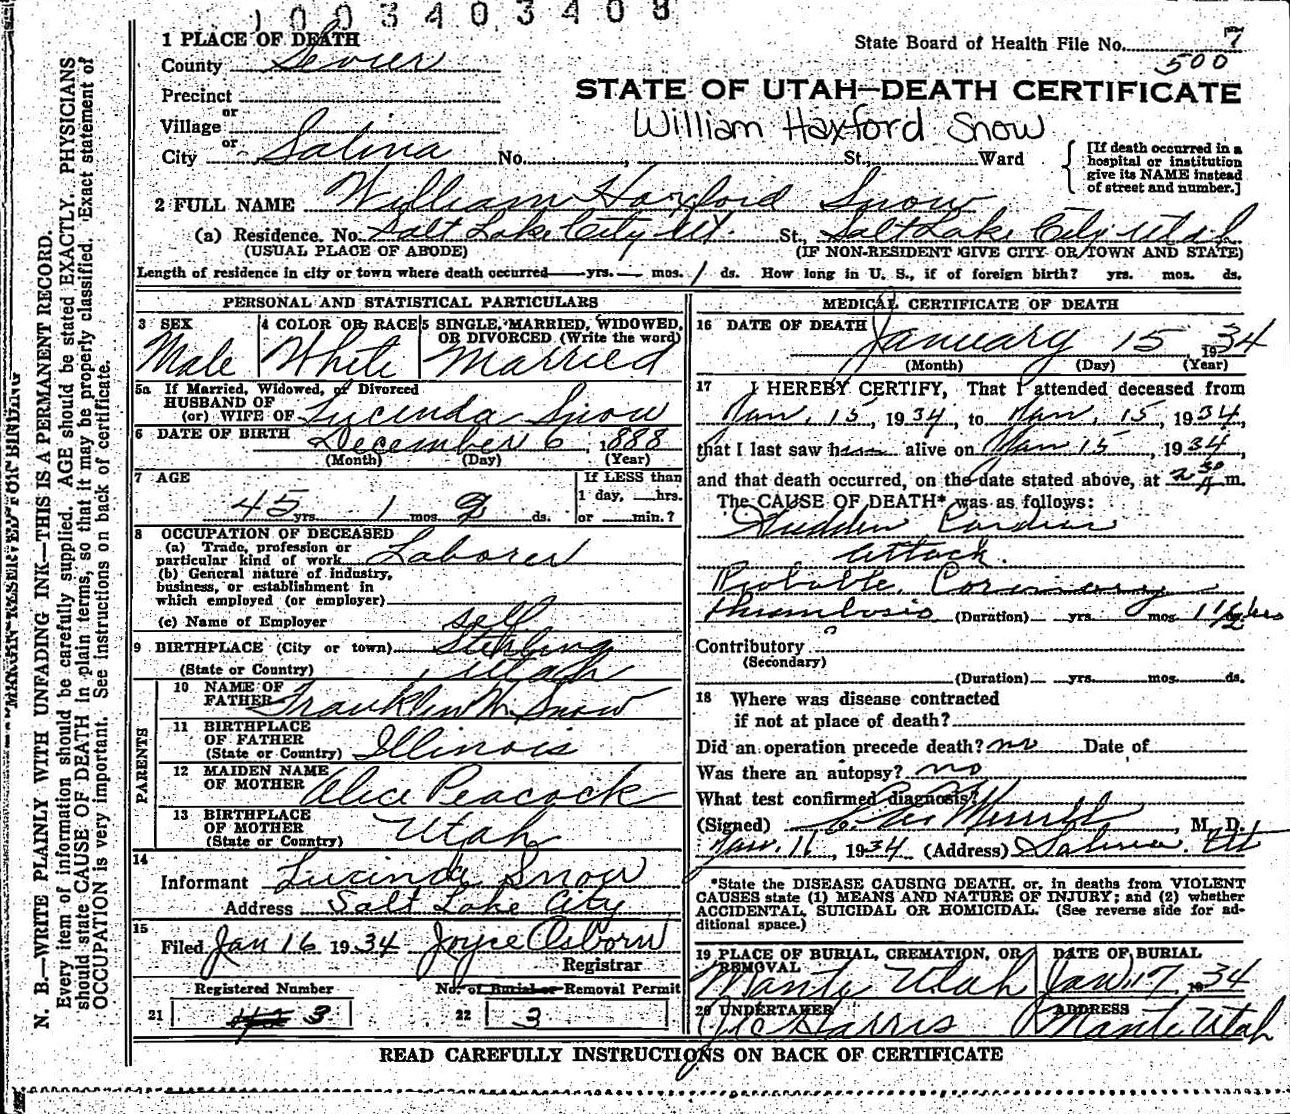 1003403408
1 PLACE OF DEATH
County Sevier
State Board of Health File No. 7
500
Precinct
or
Village
or
City Salina No. , St., Ward
STATE OF UTAH—DEATH CERTIFICATE
William Haxford Snow
[If death occurred in a
hospital or institution
give its NAME instead
of street and number.]
2 FULL NAME William Haxford Snow
(a) Residence. No. Salt Lake City Ut. St., Salt Lake City Utah
(USUAL PLACE OF ABODE) (IF NON-RESIDENT GIVE CITY OR TOWN AND STATE)
Length of residence in city or town where death occurred — yrs. — mos. 1 ds. How long in U. S., if of foreign birth? yrs. mos. ds.
PERSONAL AND STATISTICAL PARTICULARS
3 SEX 4 COLOR OR RACE 5 SINGLE, MARRIED, WIDOWED,
OR DIVORCED (Write the word)
Male White Married
5a If Married, Widowed, or Divorced
HUSBAND OF
(or) WIFE OF Lucinda Snow
6 DATE OF BIRTH December 6, 1888
(Month) (Day) (Year)
7 AGE If LESS than
1 day, hrs.
45 yrs. 1 mos. 9 ds. or min.?
8 OCCUPATION OF DECEASED
(a) Trade, profession or
particular kind of work Laborer
(b) General nature of industry,
business, or establishment in
which employed (or employer)
(c) Name of Employer self
9 BIRTHPLACE (City or town) Sterling
(State or Country) Utah
PARENTS
10 NAME OF
FATHER Franklin W. Snow
11 BIRTHPLACE
OF FATHER
(State or Country) Illinois
12 MAIDEN NAME
OF MOTHER Alice Peacock
13 BIRTHPLACE
OF MOTHER
(State or Country) Utah
14
Informant Lucinda Snow
Address Salt Lake City
15
Filed Jan 16 1934 Joyce Osborn
Registrar
Registered Number No. of Burial or Removal Permit
21 3 22 3
MEDICAL CERTIFICATE OF DEATH
16 DATE OF DEATH January 15 1934
(Month) (Day) (Year)
17 I HEREBY CERTIFY, That I attended deceased from
Jan. 15, 1934, to Jan. 15, 1934,
that I last saw h alive on Jan 15, 1934,
and that death occurred, on the date stated above, at 2 30 A m.
The CAUSE OF DEATH* was as follows:
Sudden Cardiac
attack.
Probable Coronary
thrombosis (Duration) — yrs. mos. 1 1/2 hrs
Contributory
(Secondary)
(Duration) yrs. mos. ds.
18 Where was disease contracted
if not at place of death?
Did an operation precede death? no Date of
Was there an autopsy? no
What test confirmed diagnosis?
(Signed) Merrill, M. D.
Jan. 16, 1934 (Address) Salina, Ut
*State the DISEASE CAUSING DEATH, or, in deaths from VIOLENT
CAUSES state (1) MEANS AND NATURE OF INJURY; and (2) whether
ACCIDENTAL, SUICIDAL OR HOMICIDAL. (See reverse side for ad-
ditional space.)
19 PLACE OF BURIAL, CREMATION, OR
REMOVAL DATE OF BURIAL
Manti, Utah Jan. 17, 1934
20 UNDERTAKER ADDRESS
Harris Manti Utah
READ CAREFULLY INSTRUCTIONS ON BACK OF CERTIFICATE
MARGIN RESERVED FOR BINDING
N. B.—WRITE PLAINLY WITH UNFADING INK—THIS IS A PERMANENT RECORD.
Every item of information should be carefully supplied. AGE should be stated EXACTLY. PHYSICIANS
should state CAUSE OF DEATH in plain terms, so that it may be properly classified. Exact statement of
OCCUPATION is very important. See instructions on back of certificate.